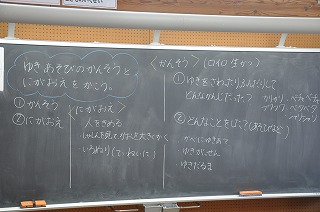 ゆきあそびのかんそうと、
にがおえをかこう。
①かんそう
②にがおえ
〈にがおえ〉
人をきめる
いろぬり(ていねいに)
〈かんそう〉(ロイロ 生かつ)
①ゆきをさわったりふんだりして
どんなかんじだった?
②どんなことをした?(あそびなど)
かべにゆきあて
ゆきがっせん
ゆきだるま